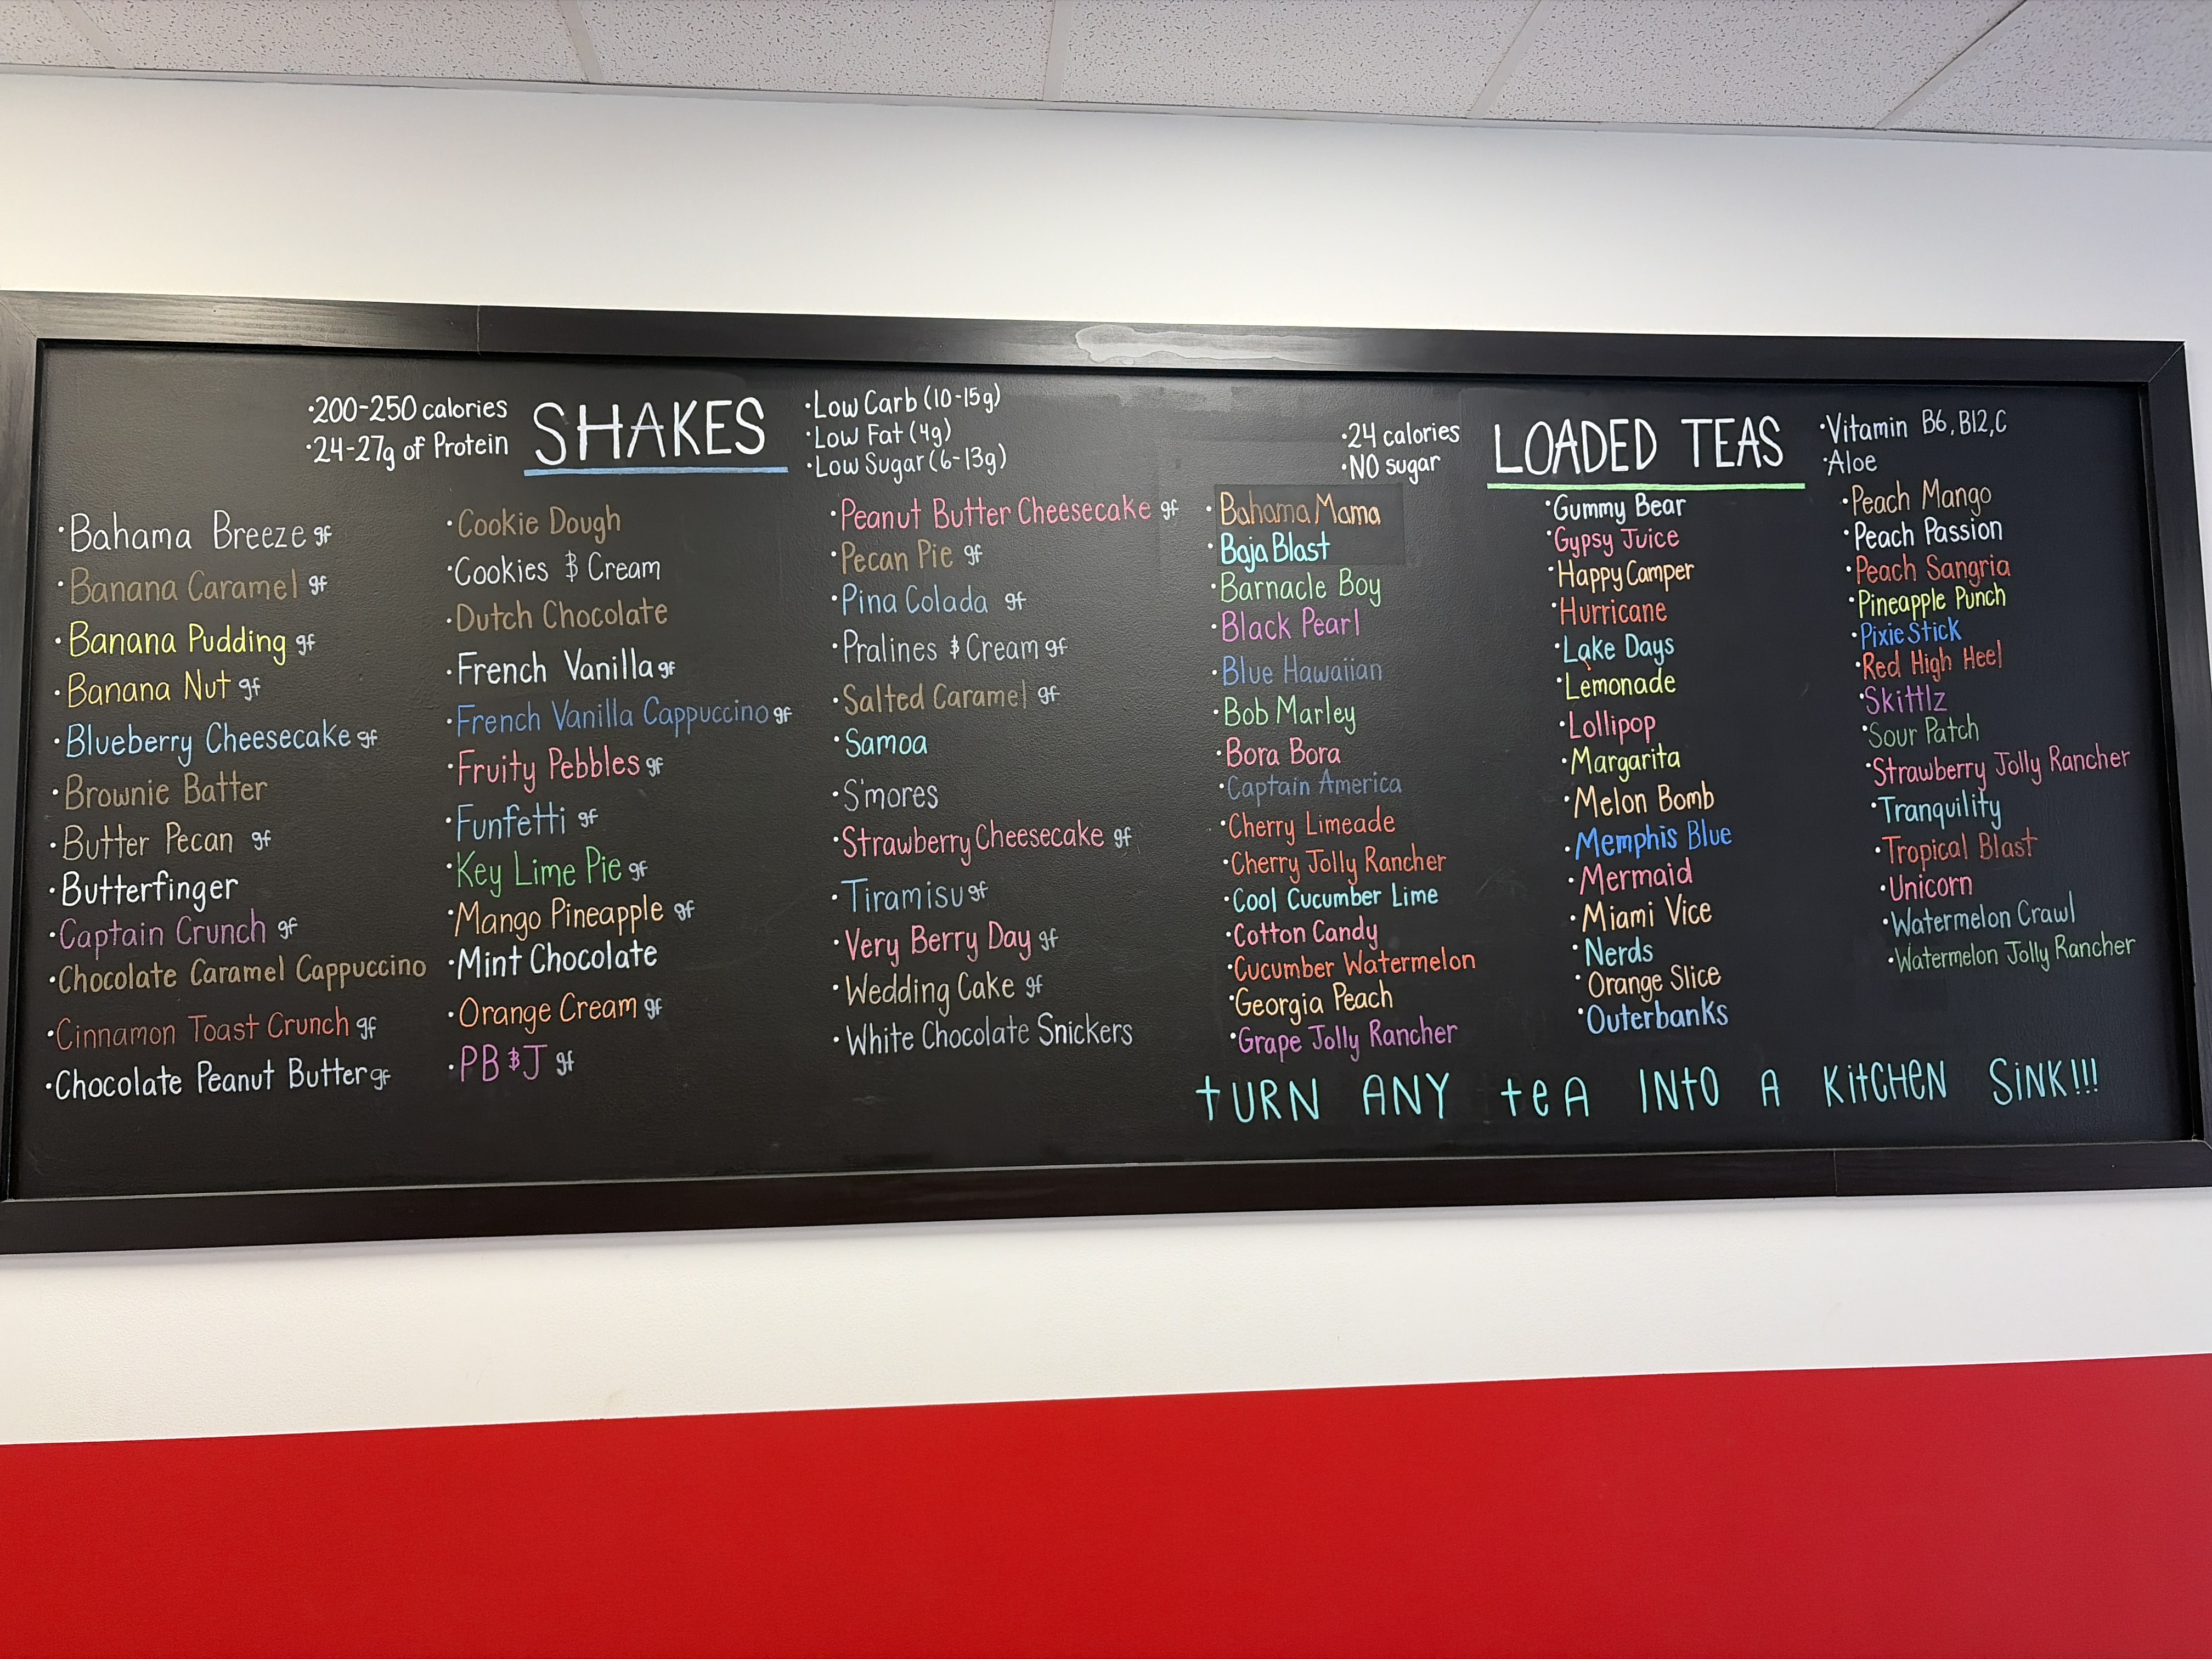 ·200-250 calories
·24-27g of Protein
SHAKES
·Low Carb (10-15g)
·Low Fat (4g)
·Low Sugar (6-13g)
·Bahama Breeze gf
·Banana Caramel gf
·Banana Pudding gf
·Banana Nut gf
·Blueberry Cheesecake gf
·Brownie Batter
·Butter Pecan gf
·Butterfinger
·Captain Crunch gf
·Chocolate Caramel Cappuccino
·Cinnamon Toast Crunch gf
·Chocolate Peanut Butter gf
·Cookie Dough
·Cookies & Cream
·Dutch Chocolate
·French Vanilla gf
·French Vanilla Cappuccino gf
·Fruity Pebbles gf
·Funfetti gf
·Key Lime Pie gf
·Mango Pineapple gf
·Mint Chocolate
·Orange Cream gf
·PB & J gf
·Peanut Butter Cheesecake gf
·Pecan Pie gf
·Pina Colada gf
·Pralines & Cream gf
·Salted Caramel gf
·Samoa
·S'mores
·Strawberry Cheesecake gf
·Tiramisu gf
·Very Berry Day gf
·Wedding Cake gf
·White Chocolate Snickers
·24 calories
·NO sugar
LOADED TEAS
·Vitamin B6, B12, C
·Aloe
·Bahama Mama
·Baja Blast
·Barnacle Boy
·Black Pearl
·Blue Hawaiian
·Bob Marley
·Bora Bora
·Captain America
·Cherry Limeade
·Cherry Jolly Rancher
·Cool Cucumber Lime
·Cotton Candy
·Cucumber Watermelon
·Georgia Peach
·Grape Jolly Rancher
·Gummy Bear
·Gypsy Juice
·Happy Camper
·Hurricane
·Lake Days
·Lemonade
·Lollipop
·Margarita
·Melon Bomb
·Memphis Blue
·Mermaid
·Miami Vice
·Nerds
·Orange Slice
·Outerbanks
·Peach Mango
·Peach Passion
·Peach Sangria
·Pineapple Punch
·Pixie Stick
·Red High Heel
·Skittlz
·Sour Patch
·Strawberry Jolly Rancher
·Tranquility
·Tropical Blast
·Unicorn
·Watermelon Crawl
·Watermelon Jolly Rancher
tURN ANY teA INtO A KitCHeN SiNK!!!